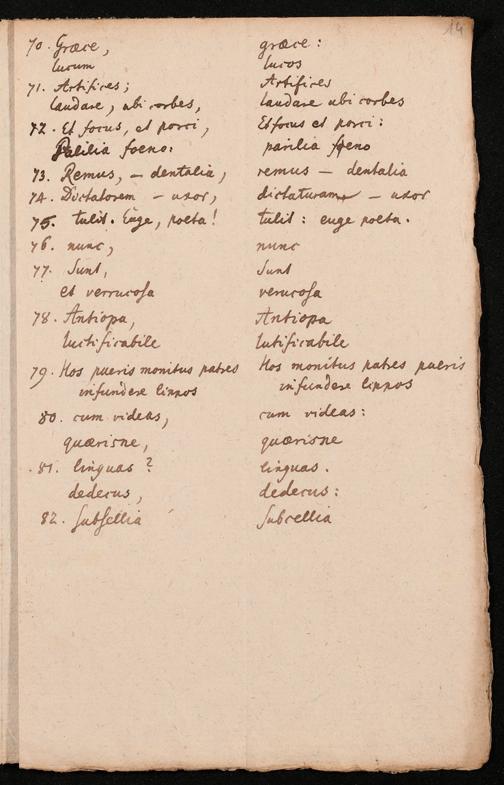 14
70. Græce, græce:
lucum lucos
71. Artifices; Artifices
laudare, ubi corbes, laudare ubi corbes
72. Et focus, et porci, Et focus et porci:
Palilia foeno: parilia foeno
73. Remus, – dentalia, remus – dentalia
74. Dictatorem – uxor, dictaturam – uxor
75. tulit. Euge, poeta! tulit: euge poeta.
76. nunc, nunc
77. Sunt, Sunt
et verrucosa verucosa
78. Antiopa, Antiopa
luctificabile lutificabile
79. Hos pueris monitus patres Hos monitus patres pueris
infundere lippos infundere lippos
80. cum videas, cum videas:
quærisne, quærisne
81. linguas? linguas.
dedecus, dedecus:
82. Subsellia Subcellia